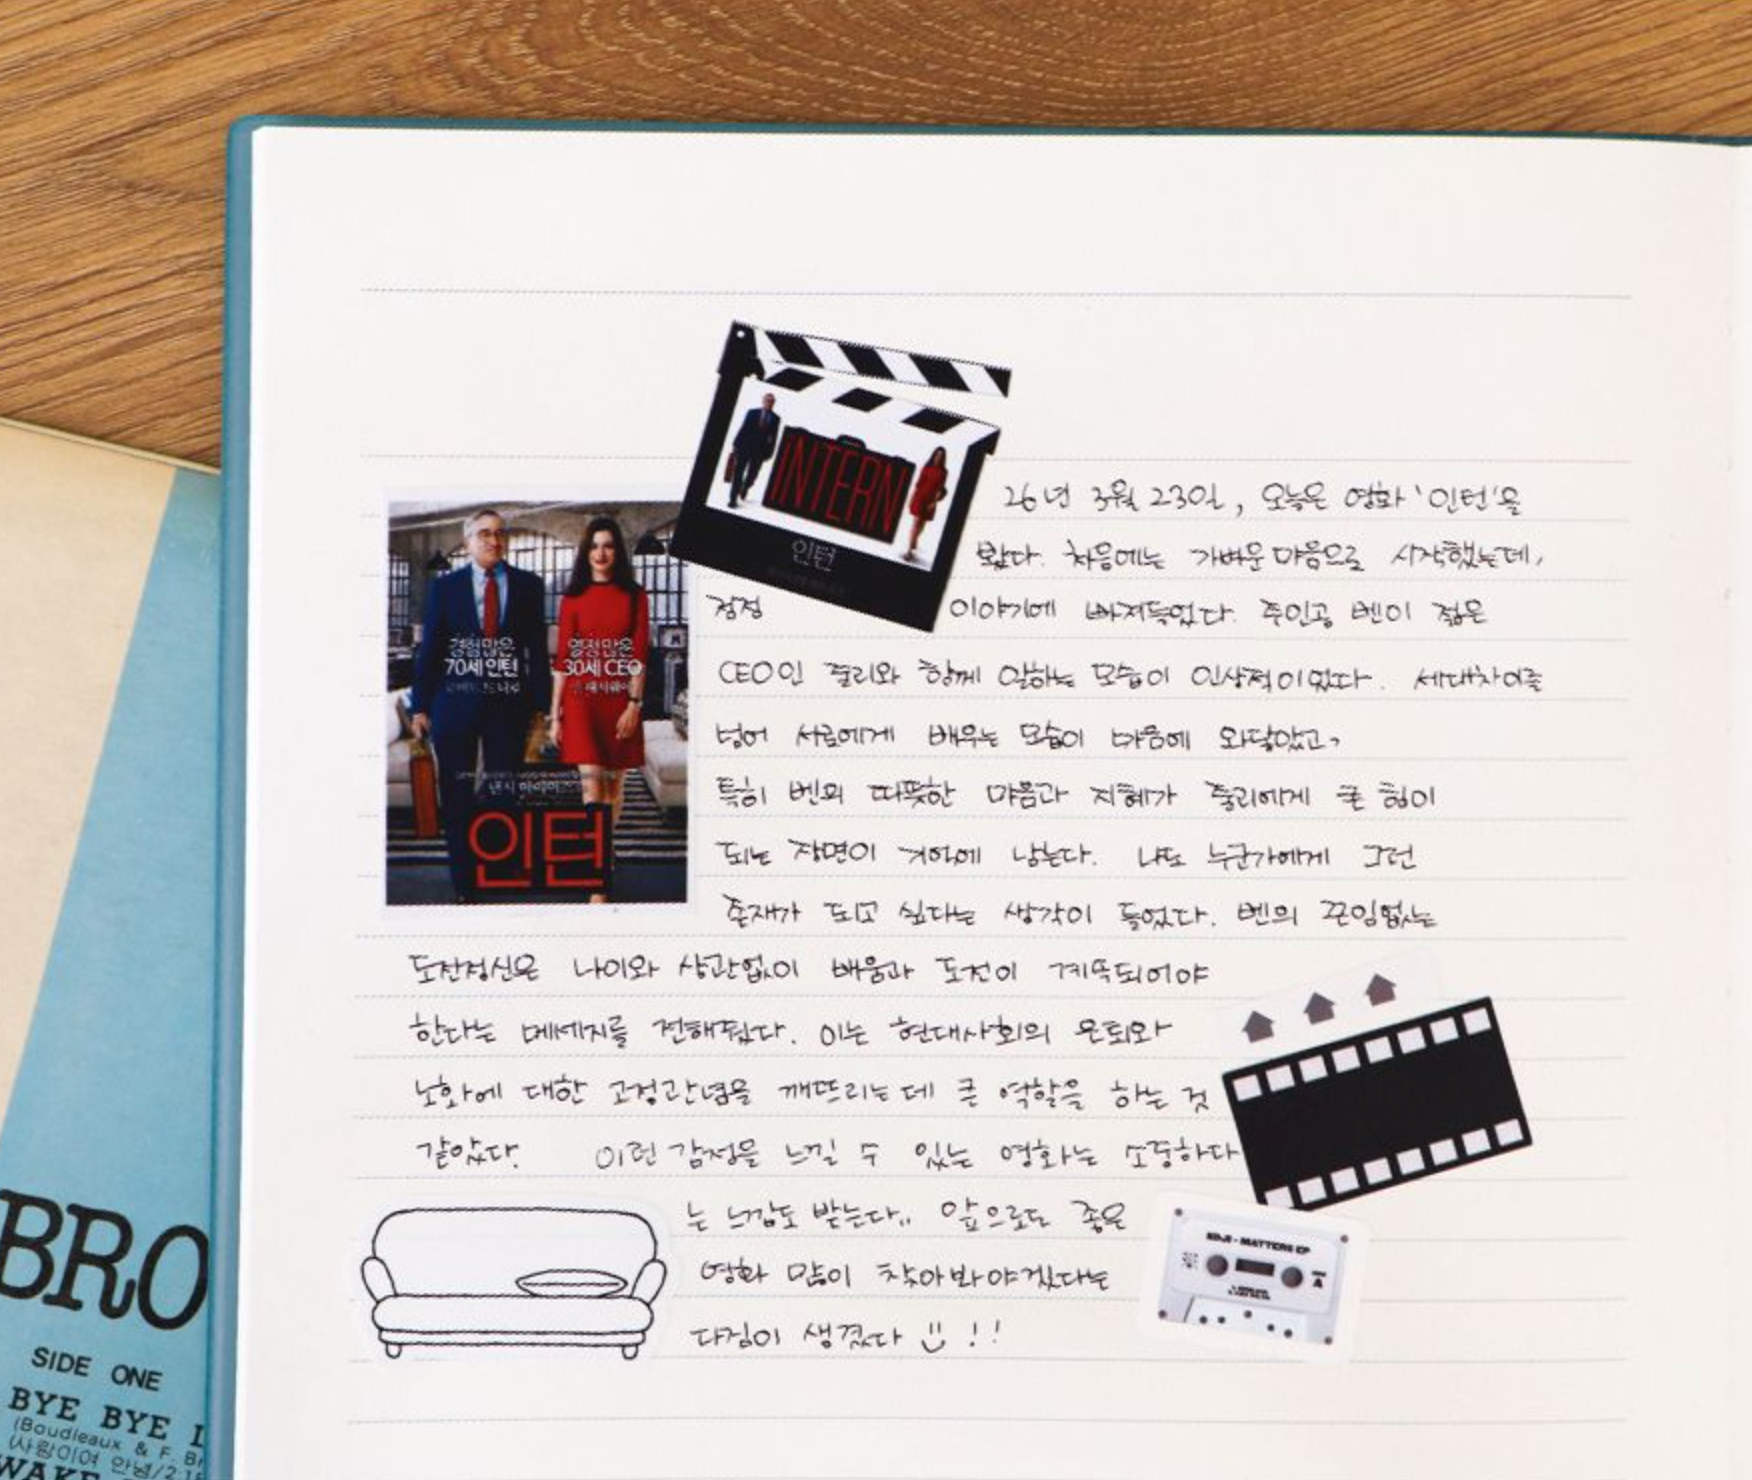 INTERN
인턴
26년 3월 23일, 오늘은 영화 '인턴'을
봤다. 처음에는 가벼운 마음으로 시작했는데,
점점 이야기에 빠져들었다. 주인공 벤이 젊은
CEO인 줄리와 함께 일하는 모습이 인상적이었다. 세대차이를
넘어 서로에게 배우는 모습이 마음에 와닿았고,
특히 벤의 따뜻한 마음과 지혜가 줄리에게 큰 힘이
되는 장면이 기억에 남는다. 나도 누군가에게 그런
존재가 되고 싶다는 생각이 들었다. 벤의 끈임없는
도전정신은 나이와 상관없이 배움과 도전이 계속되어야
한다는 메세지를 전해줬다. 이는 현대사회의 은퇴와
노화에 대한 고정관념을 깨뜨리는 데 큰 역할을 하는 것
같았다. 이런 감정을 느낄 수 있는 영화는 소중하다
는 느낌도 받는다.. 앞으로도 좋은
영화 많이 찾아봐야겠다는
다짐이 생겼다 !!
경험많은 열정많은
70세인턴 30세 CEO
인턴
MATTERS EP
A
BRO
SIDE ONE
BYE BYE L
(Boudleaux & F. Br
(사랑이여 안녕/2:1
WAKE